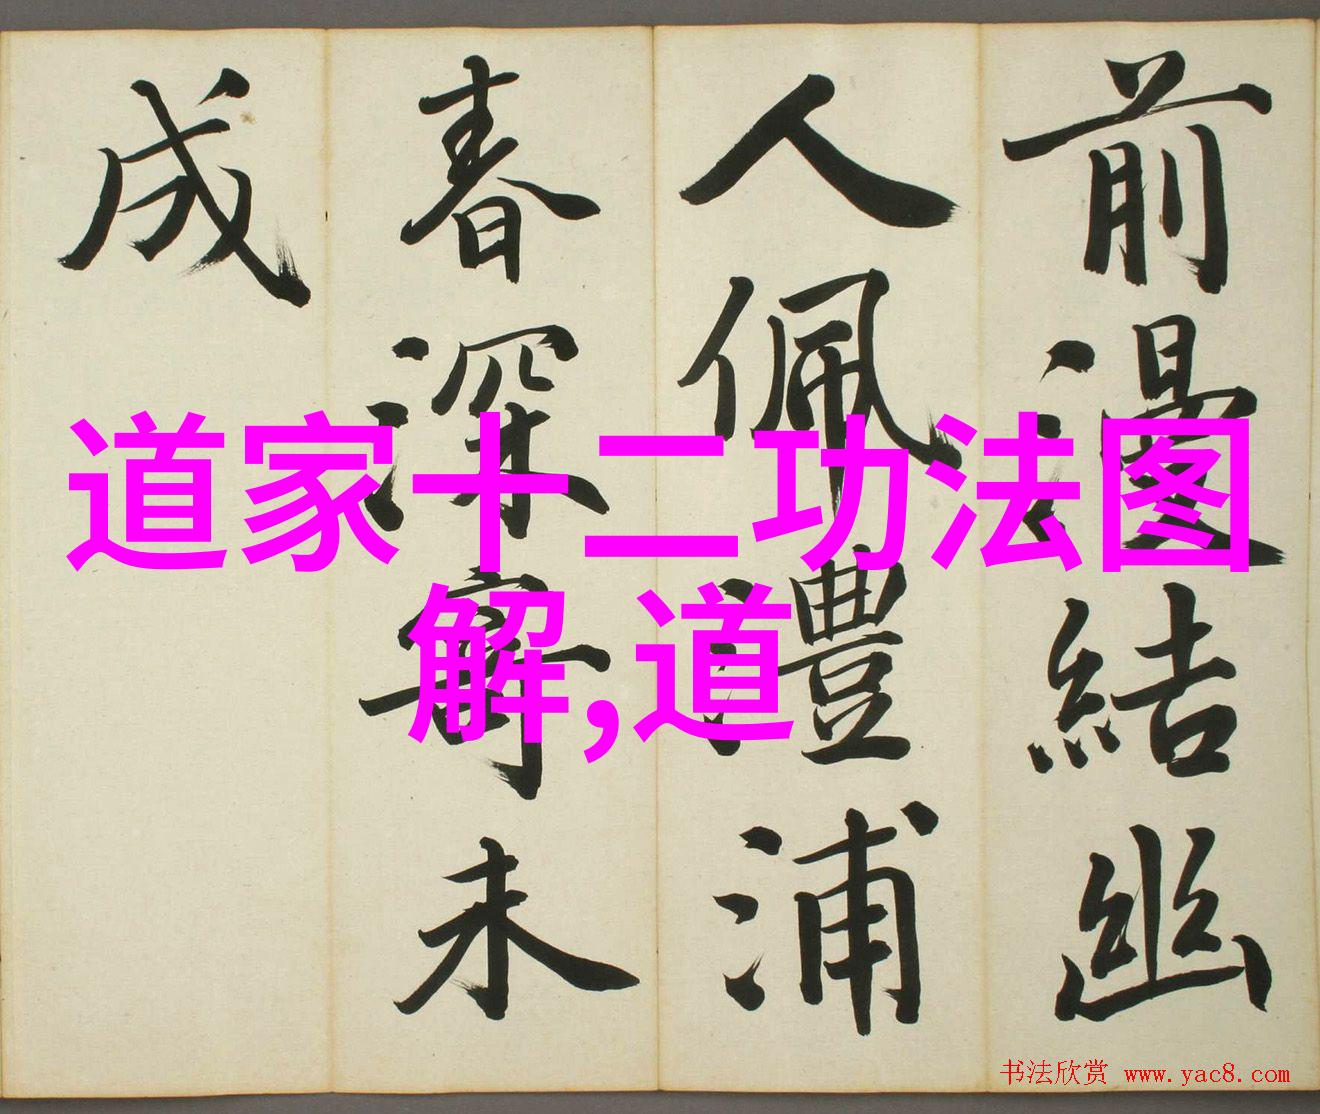 前漫結幽
人佩澧浦
春深寄未
成
道家十二功法图
解,道
书法欣赏 www.yac8.com